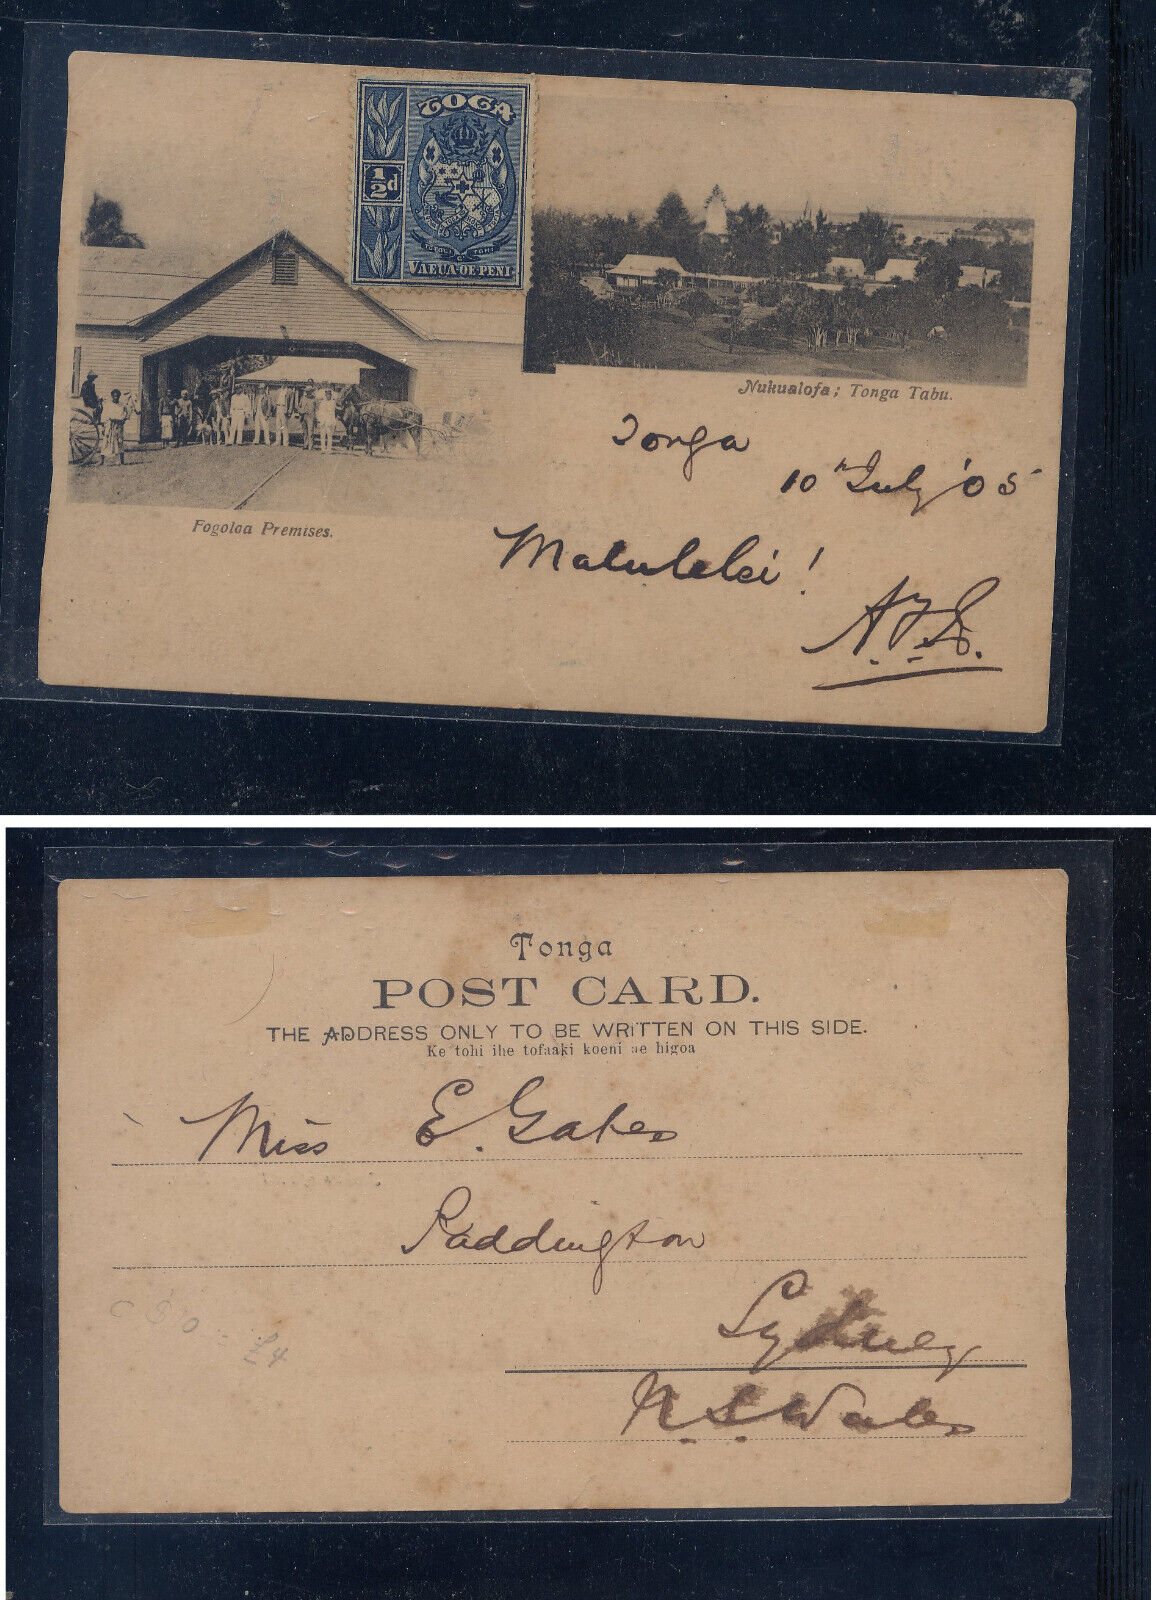 TOGA
½d
VAEUA-OE-PENI
Nukualofa; Tonga Tabu.
Fogoloa Premises.
Tonga
10th July '05
Malulelei!
Tonga
POST CARD.
THE ADDRESS ONLY TO BE WRITTEN ON THIS SIDE.
Ke tohi ihe tofaaki koeni ae higoa
Miss E. Gates
Paddington
Sydney
N.S. Wales
£4